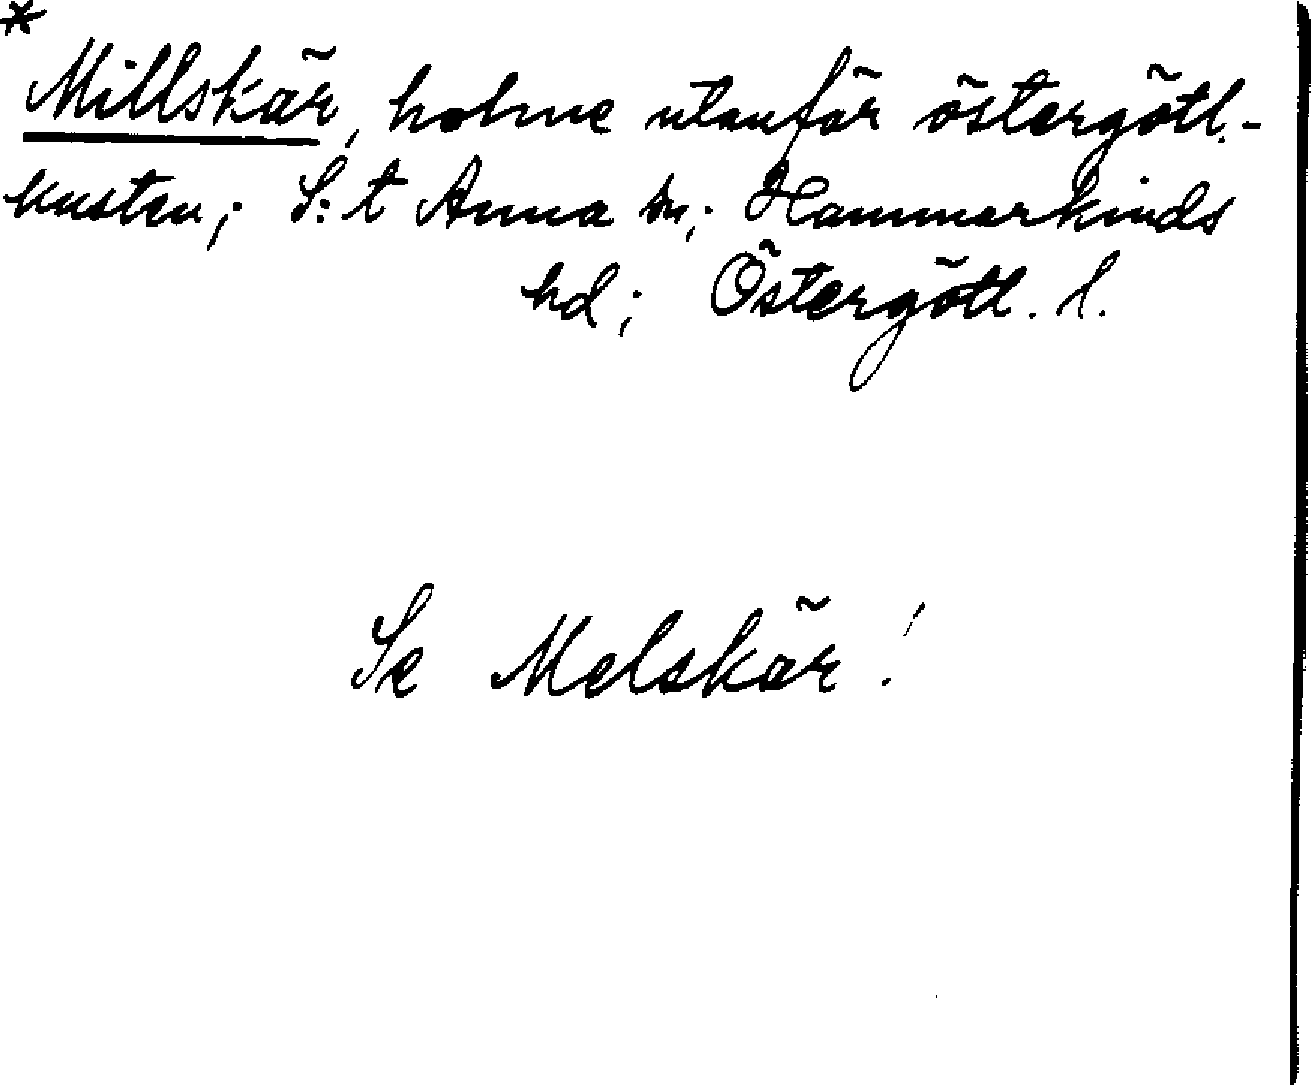 *
Millskär, holme utanför östergötl.-
kusten; S:t Anna sn; Hammarkinds
hd; Östergötl. l.
Se Melskär!